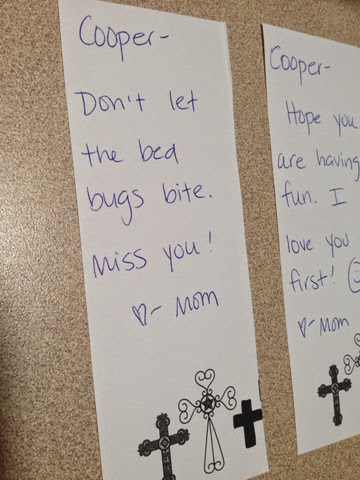 Cooper-
Don't let
the bed
bugs bite.
Miss you!
♡- Mom
Cooper-
Hope you
are having
fun. I
love you
first! ☺
♡- Mom